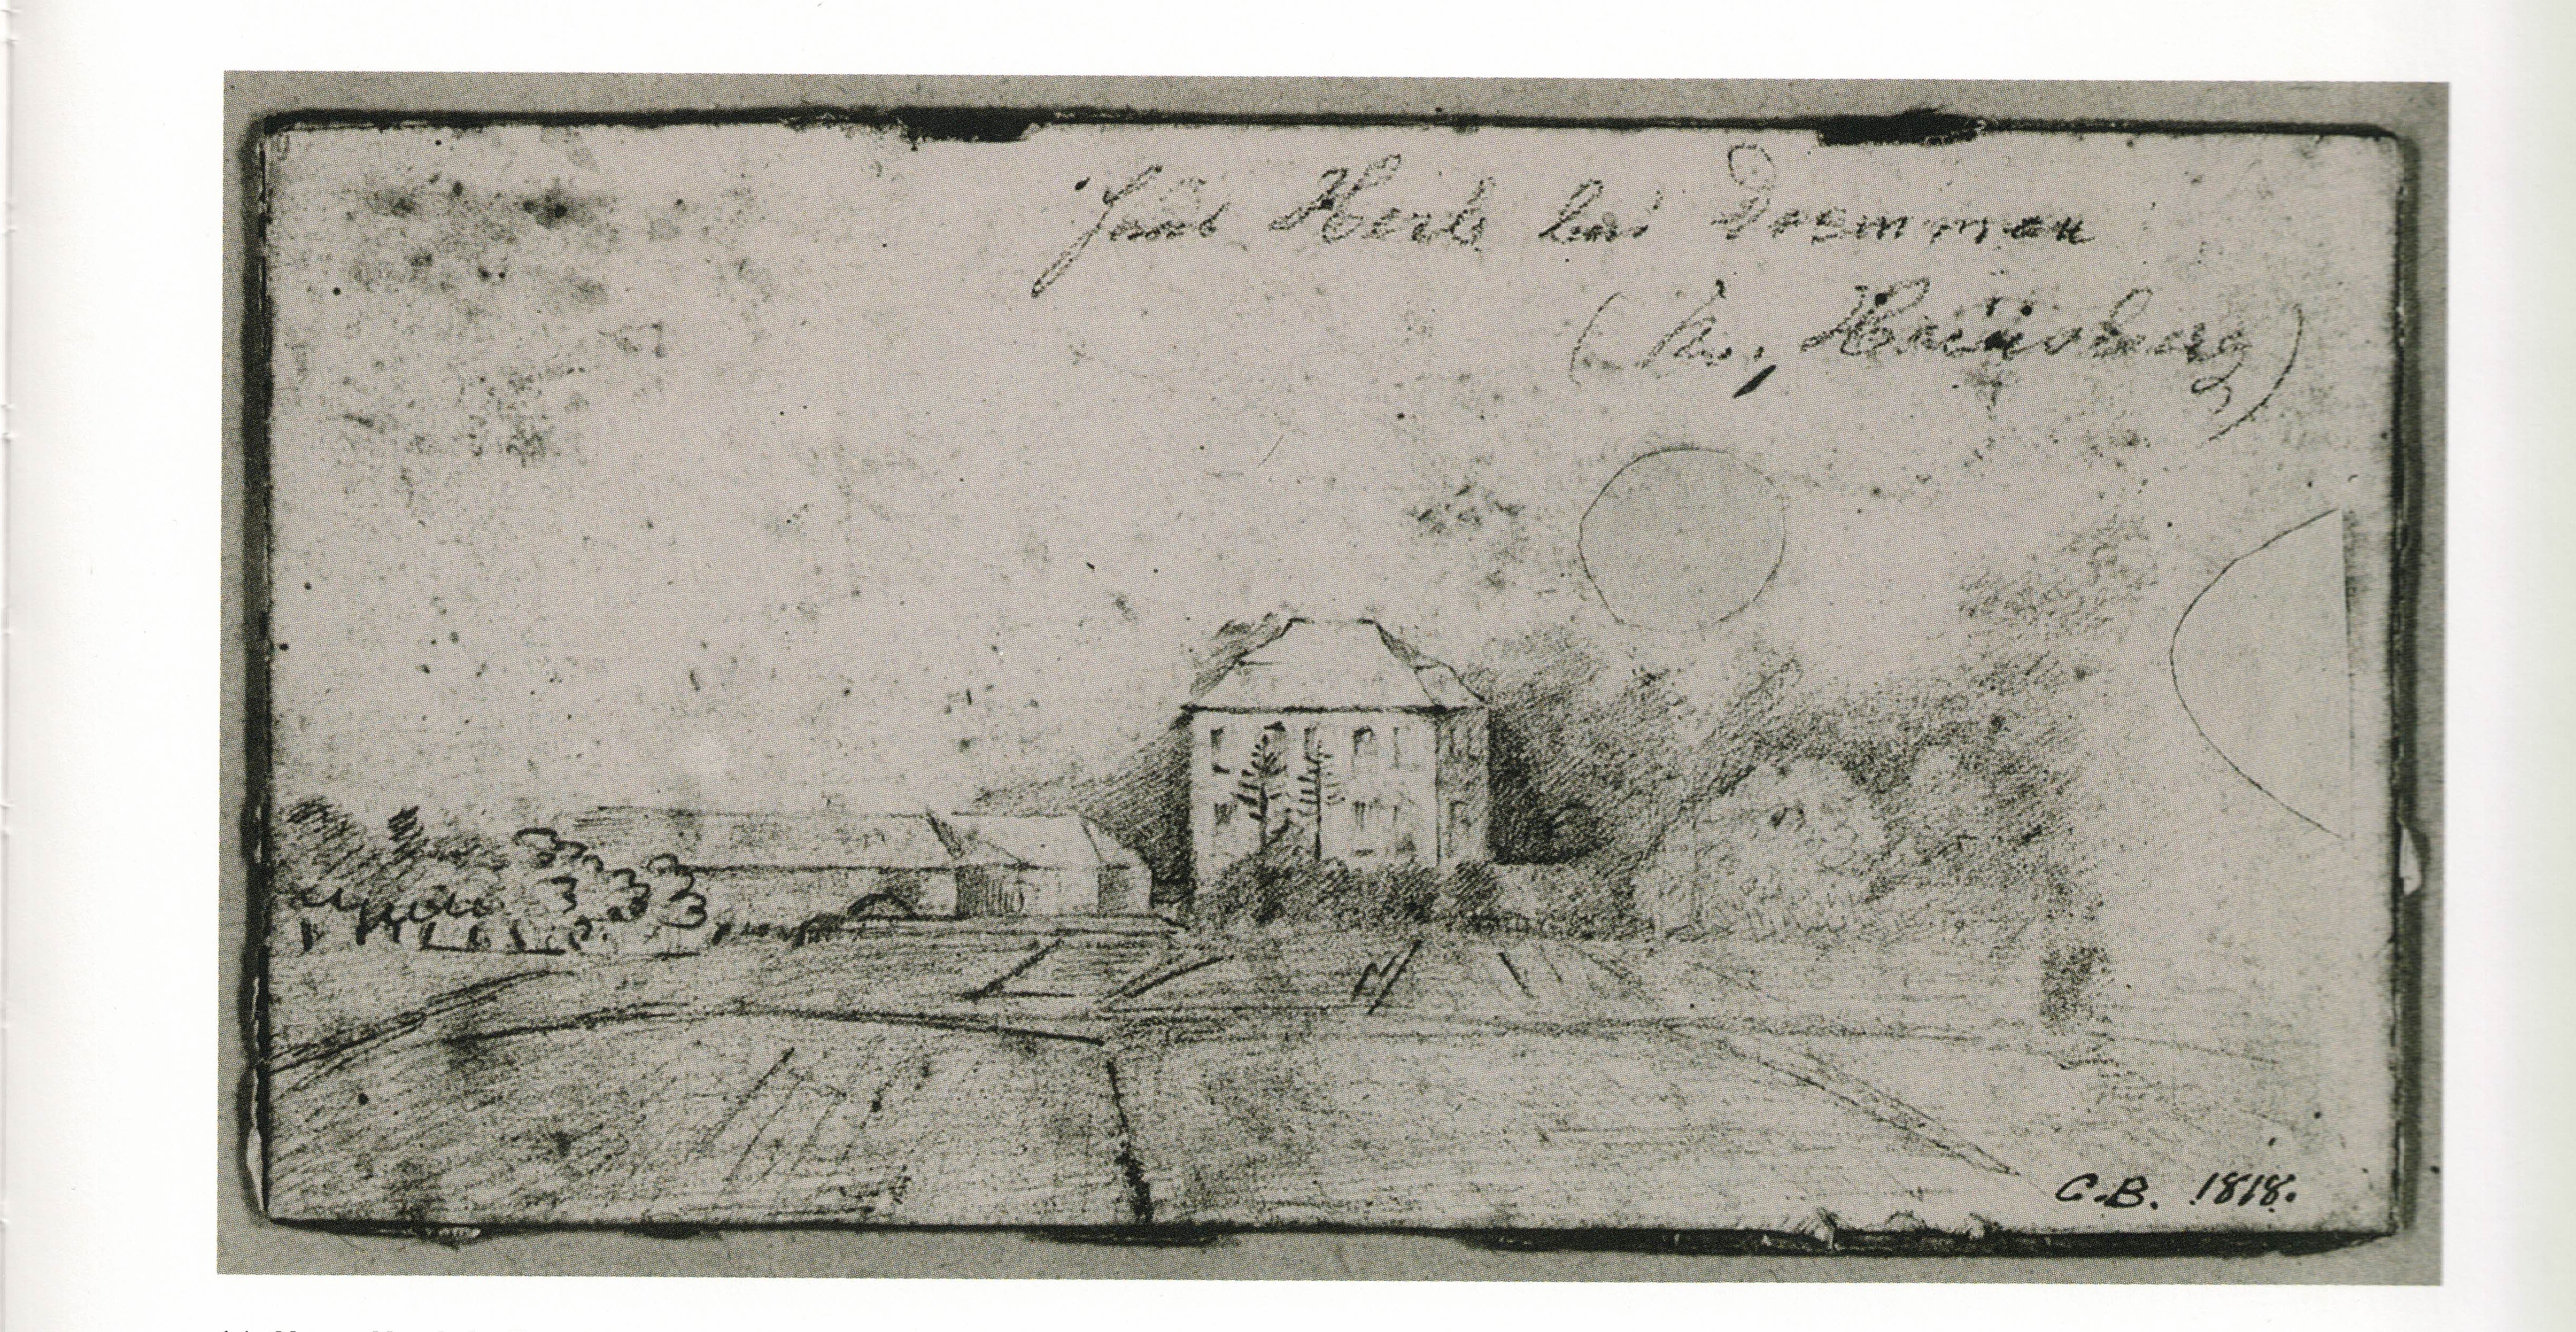 Haus Herb bei Dremmen
(Kr. Heinsberg)
C.B. 1818.